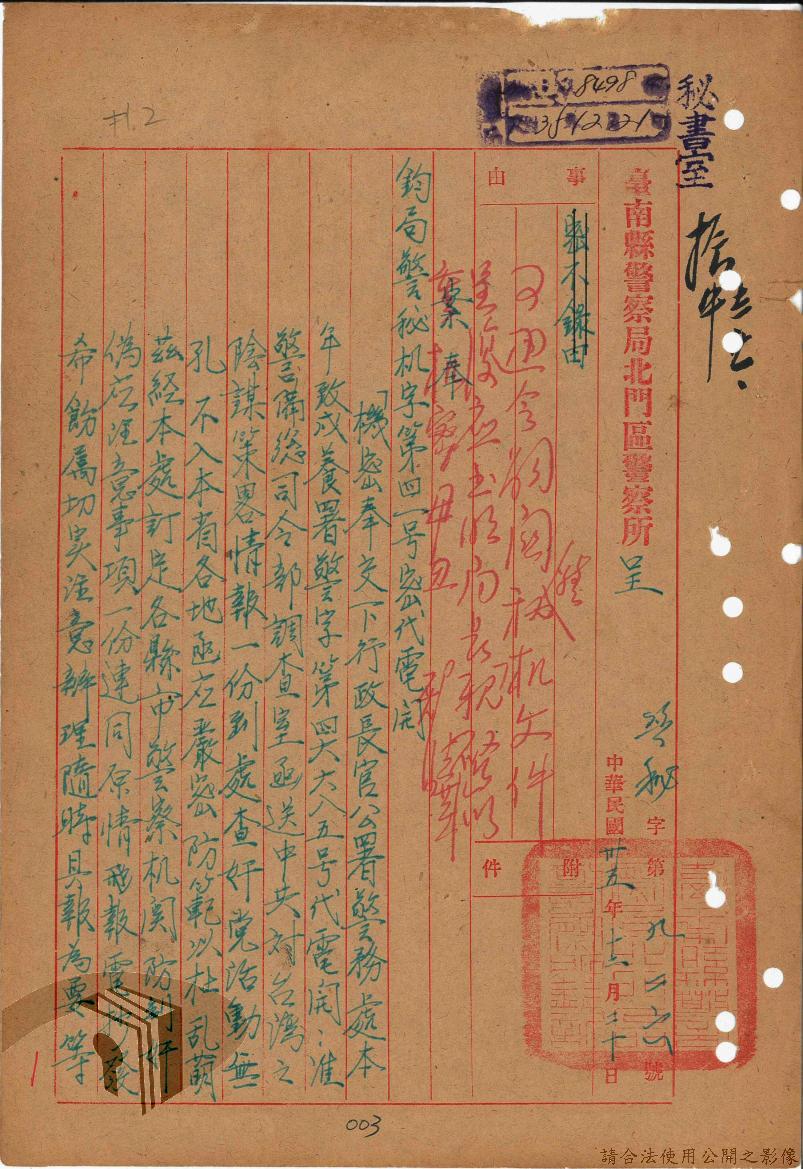 8498
35.12.21
秘書室
拾
臺南縣警察局北門區警察所 呈
警秘字第九一六號
中華民國卅五年十二月二十日
事由
附件
另通令
案奉
鈞局警秘机字第四一号密代電開
「機密奉交下行政長官公署警务處本
年致戌養署警字第四六六八五号代電開：准
警備總司令部調查室函送中共对台湾之
陰謀策畧情報一份到處查奸党活動無
孔不入本省各地亟应嚴密防範以杜乱萌
茲経本處訂定各縣市警察机関防制奸
偽应注意事項一份連同原情報電抄發
希飭属切实注意辦理隨時具報為要等
#1.2
1
003
請合法使用公開之影像